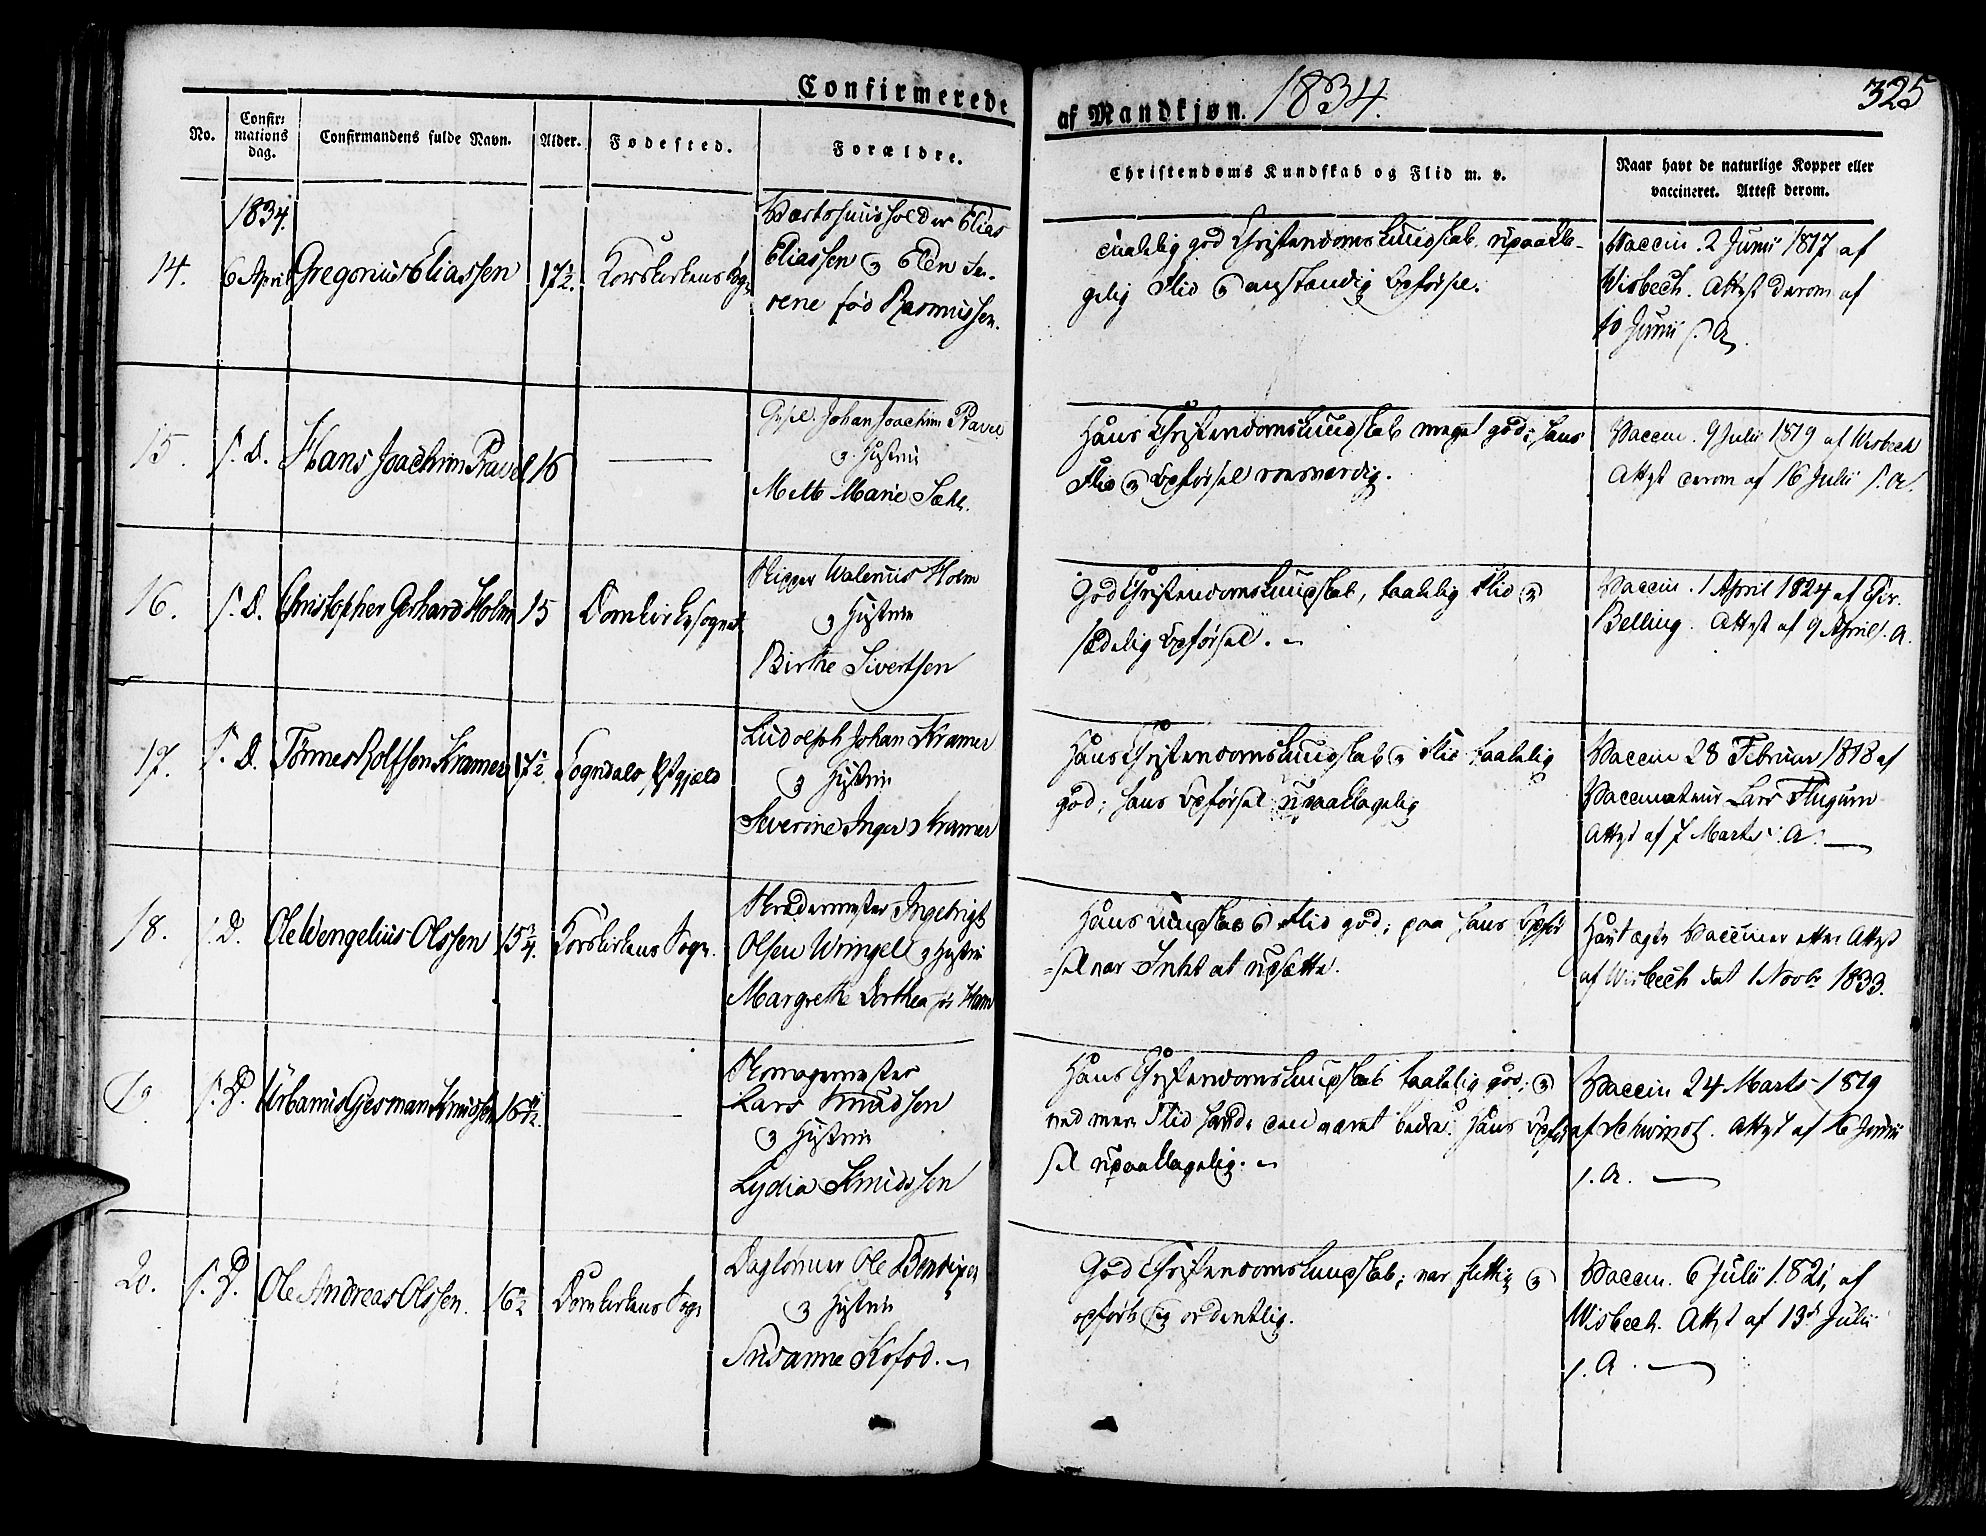 Confirmerede af Mandkjøn. 1834. 325
No.
Confir-
mations
dag.
Confirmandens fulde Navn.
Alder.
Fødested.
Forældre.
Christendoms Kundskab og Flid m. v.
Naar havt de naturlige Kopper eller
vaccineret. Attest derom.
1834.
14. 6 April Gregorius Eliassen 17½. Korskirkens Sogn
Eliassen og Elen Se-
rene fød Rasmussen.
taalelig god Christendomskundskab. upaakla-
gelig Flid og anstændig Opførsel.
Vaccin. 2 Junii 1817 af
Wisbech. Attest derom af
10 Junii s. A.
15. s. D. Hans Joachim Pravel 16 —
Johan Joachim Pravel
og Hustrue
Mette Marie
Hans Christendomskundskab meget god; hans
Flid og Opførsel roesværdig.
Vaccin. 9 Julii 1819 af Wisbech
Attest derom af 16 Julii s. A.
16. s. D. Christopher Gerhard Holm 15 Domkirkesognet
Skipper Walenus Holm
og Hustrue
Birthe Sivertsen
God Christendomskundskab, taalelig Flid og
sædelig Opførsel.
Vaccin. 1 April 1824 af Chir.
Belling. Attest af 9 April s. A.
17. s. D. Tønnes Rolfsen Kramer 17½. Sogndals Præstgjeld
Ludolph Johan Kramer
og Hustrue
Severine Inger Kramer
Hans Christendomskundskab og Flid taalelig
god; hans Opførsel upaaklagelig
Vaccin 28 Februar 1818 af
Vaccinateur Lars Flugum
Attest af 7 Marts s. A.
18. s. D. Ole Wengelius Olssen 15¾. Korskirkens Sogn.
Skrædermester Ingebrigt
Olsen Wringel og Hustrue
Margrethe Dorthea fød Ham
Hans Kundskab og Flid god; paa hans Opfør-
sel var Intet at udsætte.
Havt ægte Vacciner efter Attest
af Wisbech dat 1 Novbr 1833.
19. s. D. Urbanus Giesman Knudsen 16½. —
Lars Knudsen
og Hustrue
Lydia Knudssen
Hans Christendomskundskab taalelig god; og
med mere Flid havde den været bedre. Hans Opfør-
sel upaaklagelig.
Vaccin 24 Marts 1819
af Schwindt. Attest af 16 Junii
s. A.
20. s. D. Ole Andreas Olssen. 16½ Domkirkens Sogn
Daglønner Ole
og Hustrue
Susanne Kofod.
God Christendomskundskab; var flittig og
opførte sig ordentlig.
Vaccin. 6 Julii 1821, af
Wisbech. Attest af 13de Julii
s. A.